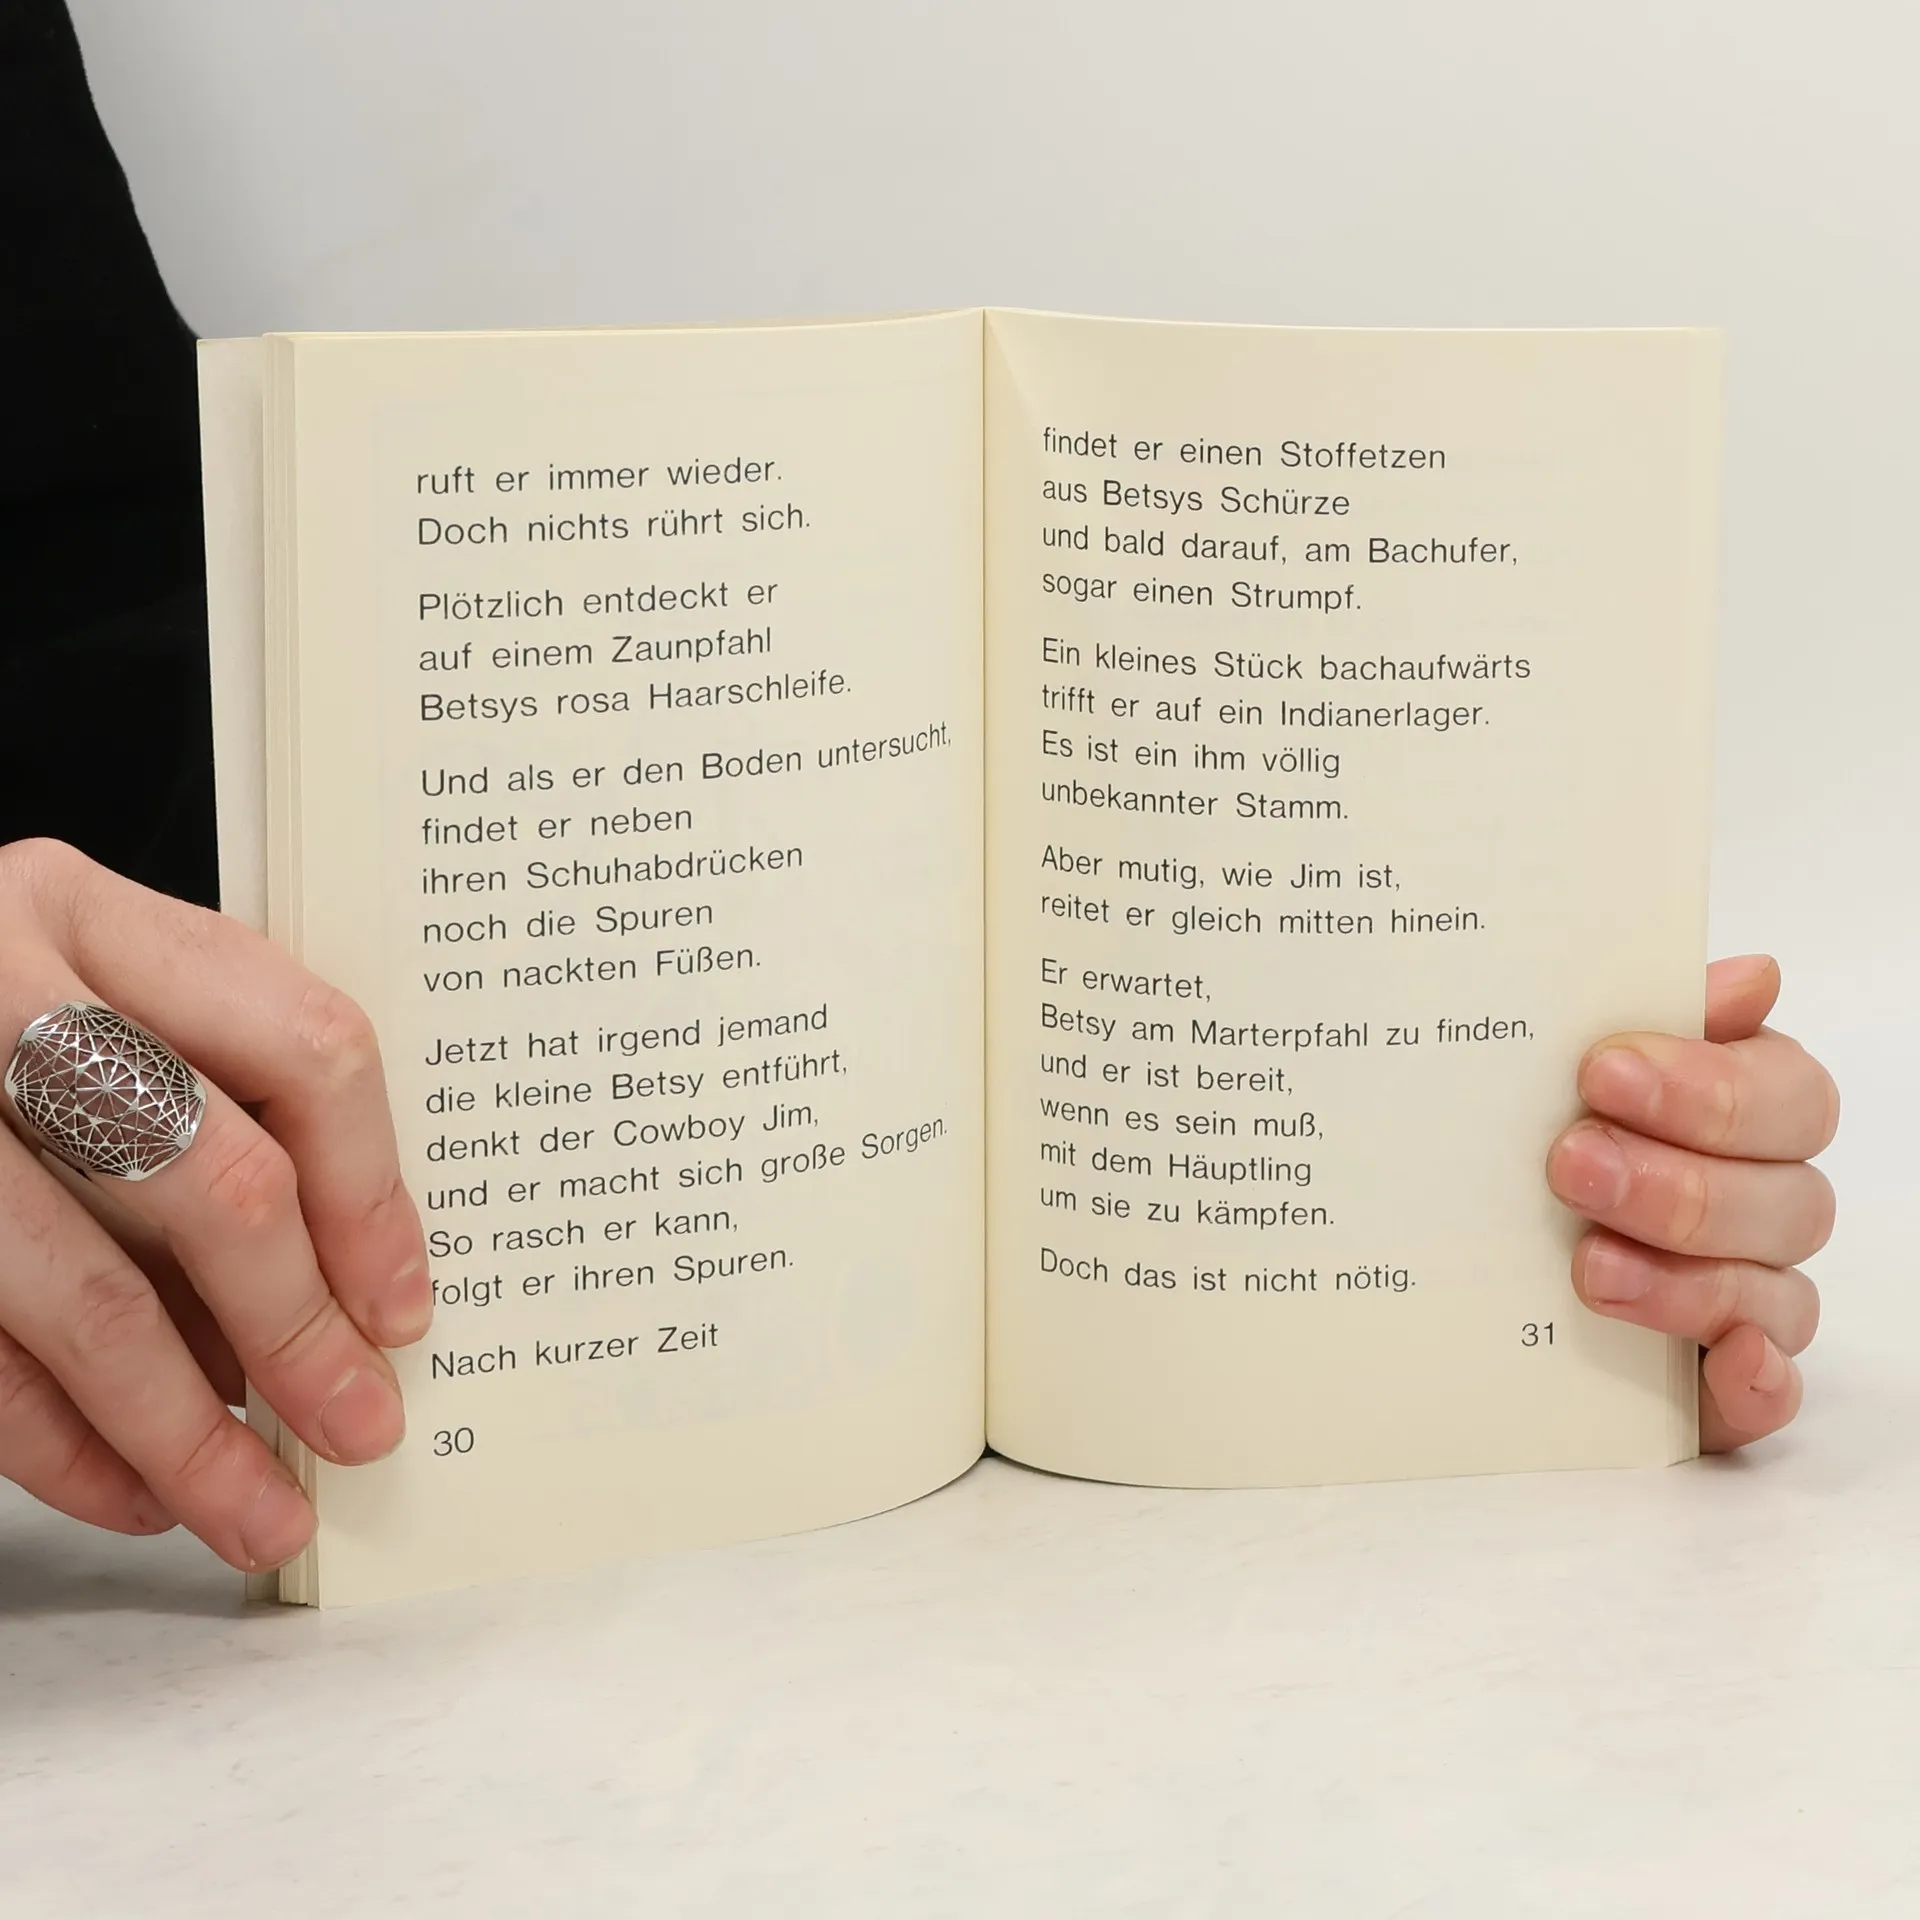 ruft er immer wieder.
Doch nichts rührt sich.
Plötzlich entdeckt er
auf einem Zaunpfahl
Betsys rosa Haarschleife.
Und als er den Boden untersucht,
findet er neben
ihren Schuhabdrücken
noch die Spuren
von nackten Füßen.
Jetzt hat irgend jemand
die kleine Betsy entführt,
denkt der Cowboy Jim,
und er macht sich große Sorgen.
So rasch er kann,
folgt er ihren Spuren.
Nach kurzer Zeit
30
findet er einen Stoffetzen
aus Betsys Schürze
und bald darauf, am Bachufer,
sogar einen Strumpf.
Ein kleines Stück bachaufwärts
trifft er auf ein Indianerlager.
Es ist ein ihm völlig
unbekannter Stamm.
Aber mutig, wie Jim ist,
reitet er gleich mitten hinein.
Er erwartet,
Betsy am Marterpfahl zu finden,
und er ist bereit,
wenn es sein muß,
mit dem Häuptling
um sie zu kämpfen.
Doch das ist nicht nötig.
31